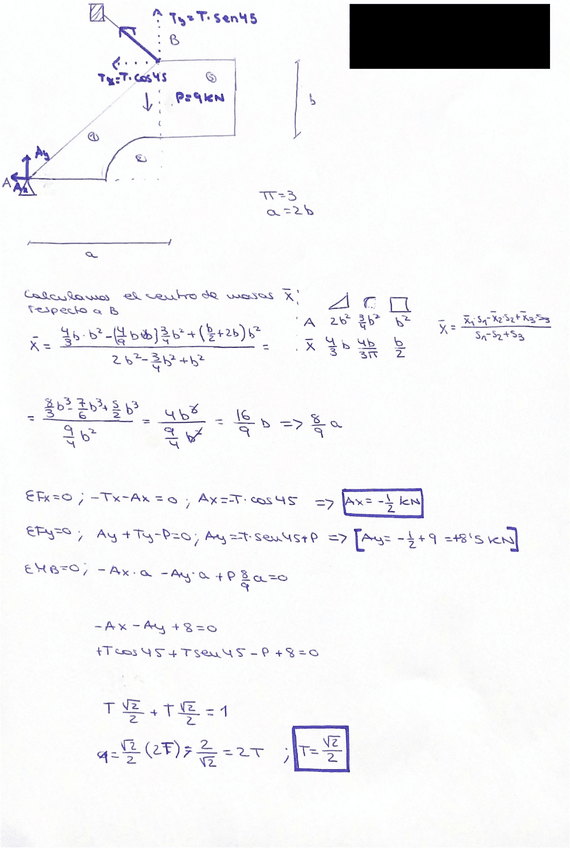 Ty=T·sen45
B
Tx=T·cos45
③
P=9KN
b
①
②
Ay
A
Ax
π=3
a=2b
a
Calculamos el centro de masas x̄:
respecto a B
A 2b² 3/4b² b²
x̄ 4/3 b 4b/3π b/2
x̄ = (x̄₁s₁-x̄₂s₂+x̄₃s₃)/(s₁-s₂+s₃)
= (8/3b³-7/6b³+5/2b³)/(9/4 b²) = 4b³/(9/4 b²) = 16/9 b => 8/9 a
ΣFx=0; -Tx-Ax=0; Ax=-T·cos45 => Ax=-1/2 KN
ΣFy=0; Ay+Ty-P=0; Ay=-T·sen45+P => [Ay= -1/2+9 =+8'5 KN]
ΣMB=0; -Ax·a -Ay·a +P 8/9 a=0
-Ax-Ay+8=0
+Tcos45+Tsen45-P+8=0
T √2/2 + T √2/2 = 1
1=√2/2 (2T); 2/√2 = 2T ; T=√2/2